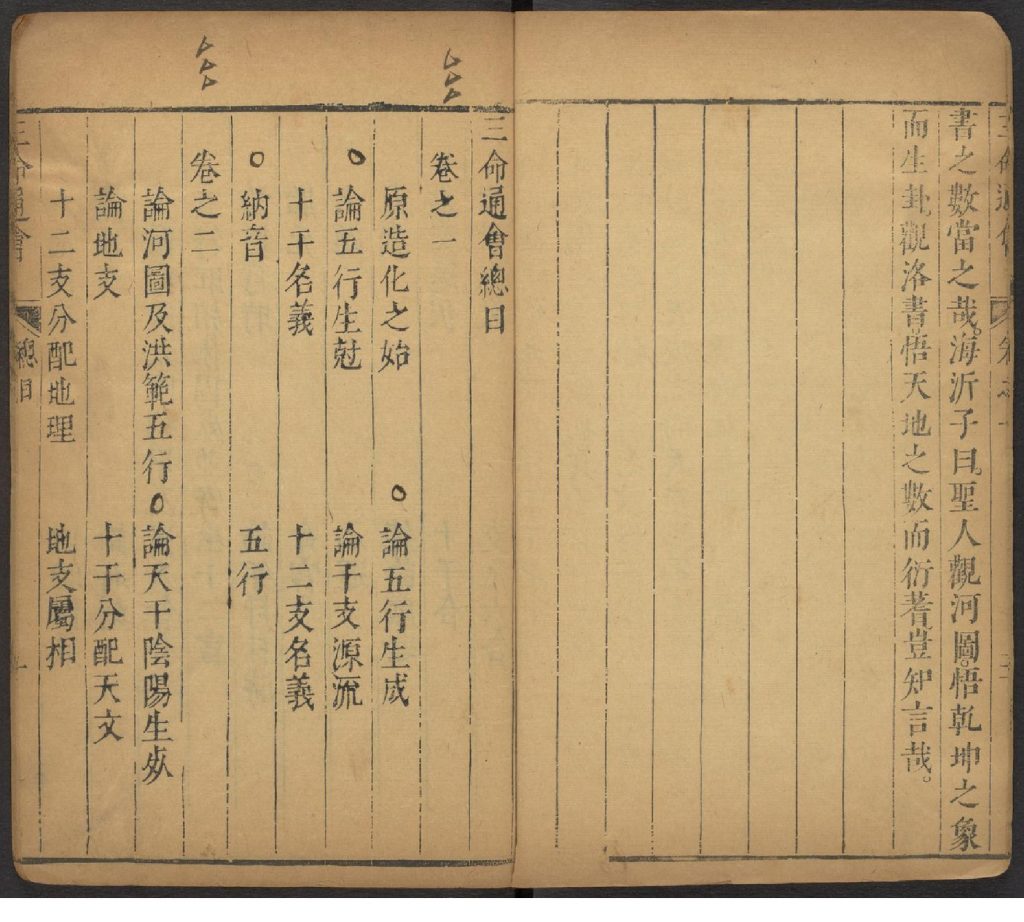 書之數當之哉。海沂子曰。聖人觀河圖。悟乾坤之象
而生卦。觀洛書。悟天地之數而衍蓍。豈知言哉。
三命通會總目
卷之一
原造化之始 ○論五行生成
○論五行生尅 論干支源流
十干名義 十二支名義
○納音 五行
卷之二
論河圖及洪範五行 ○論天干陰陽生死
論地支 十干分配天文
十二支分配地理 地支屬相
三命通會 總目